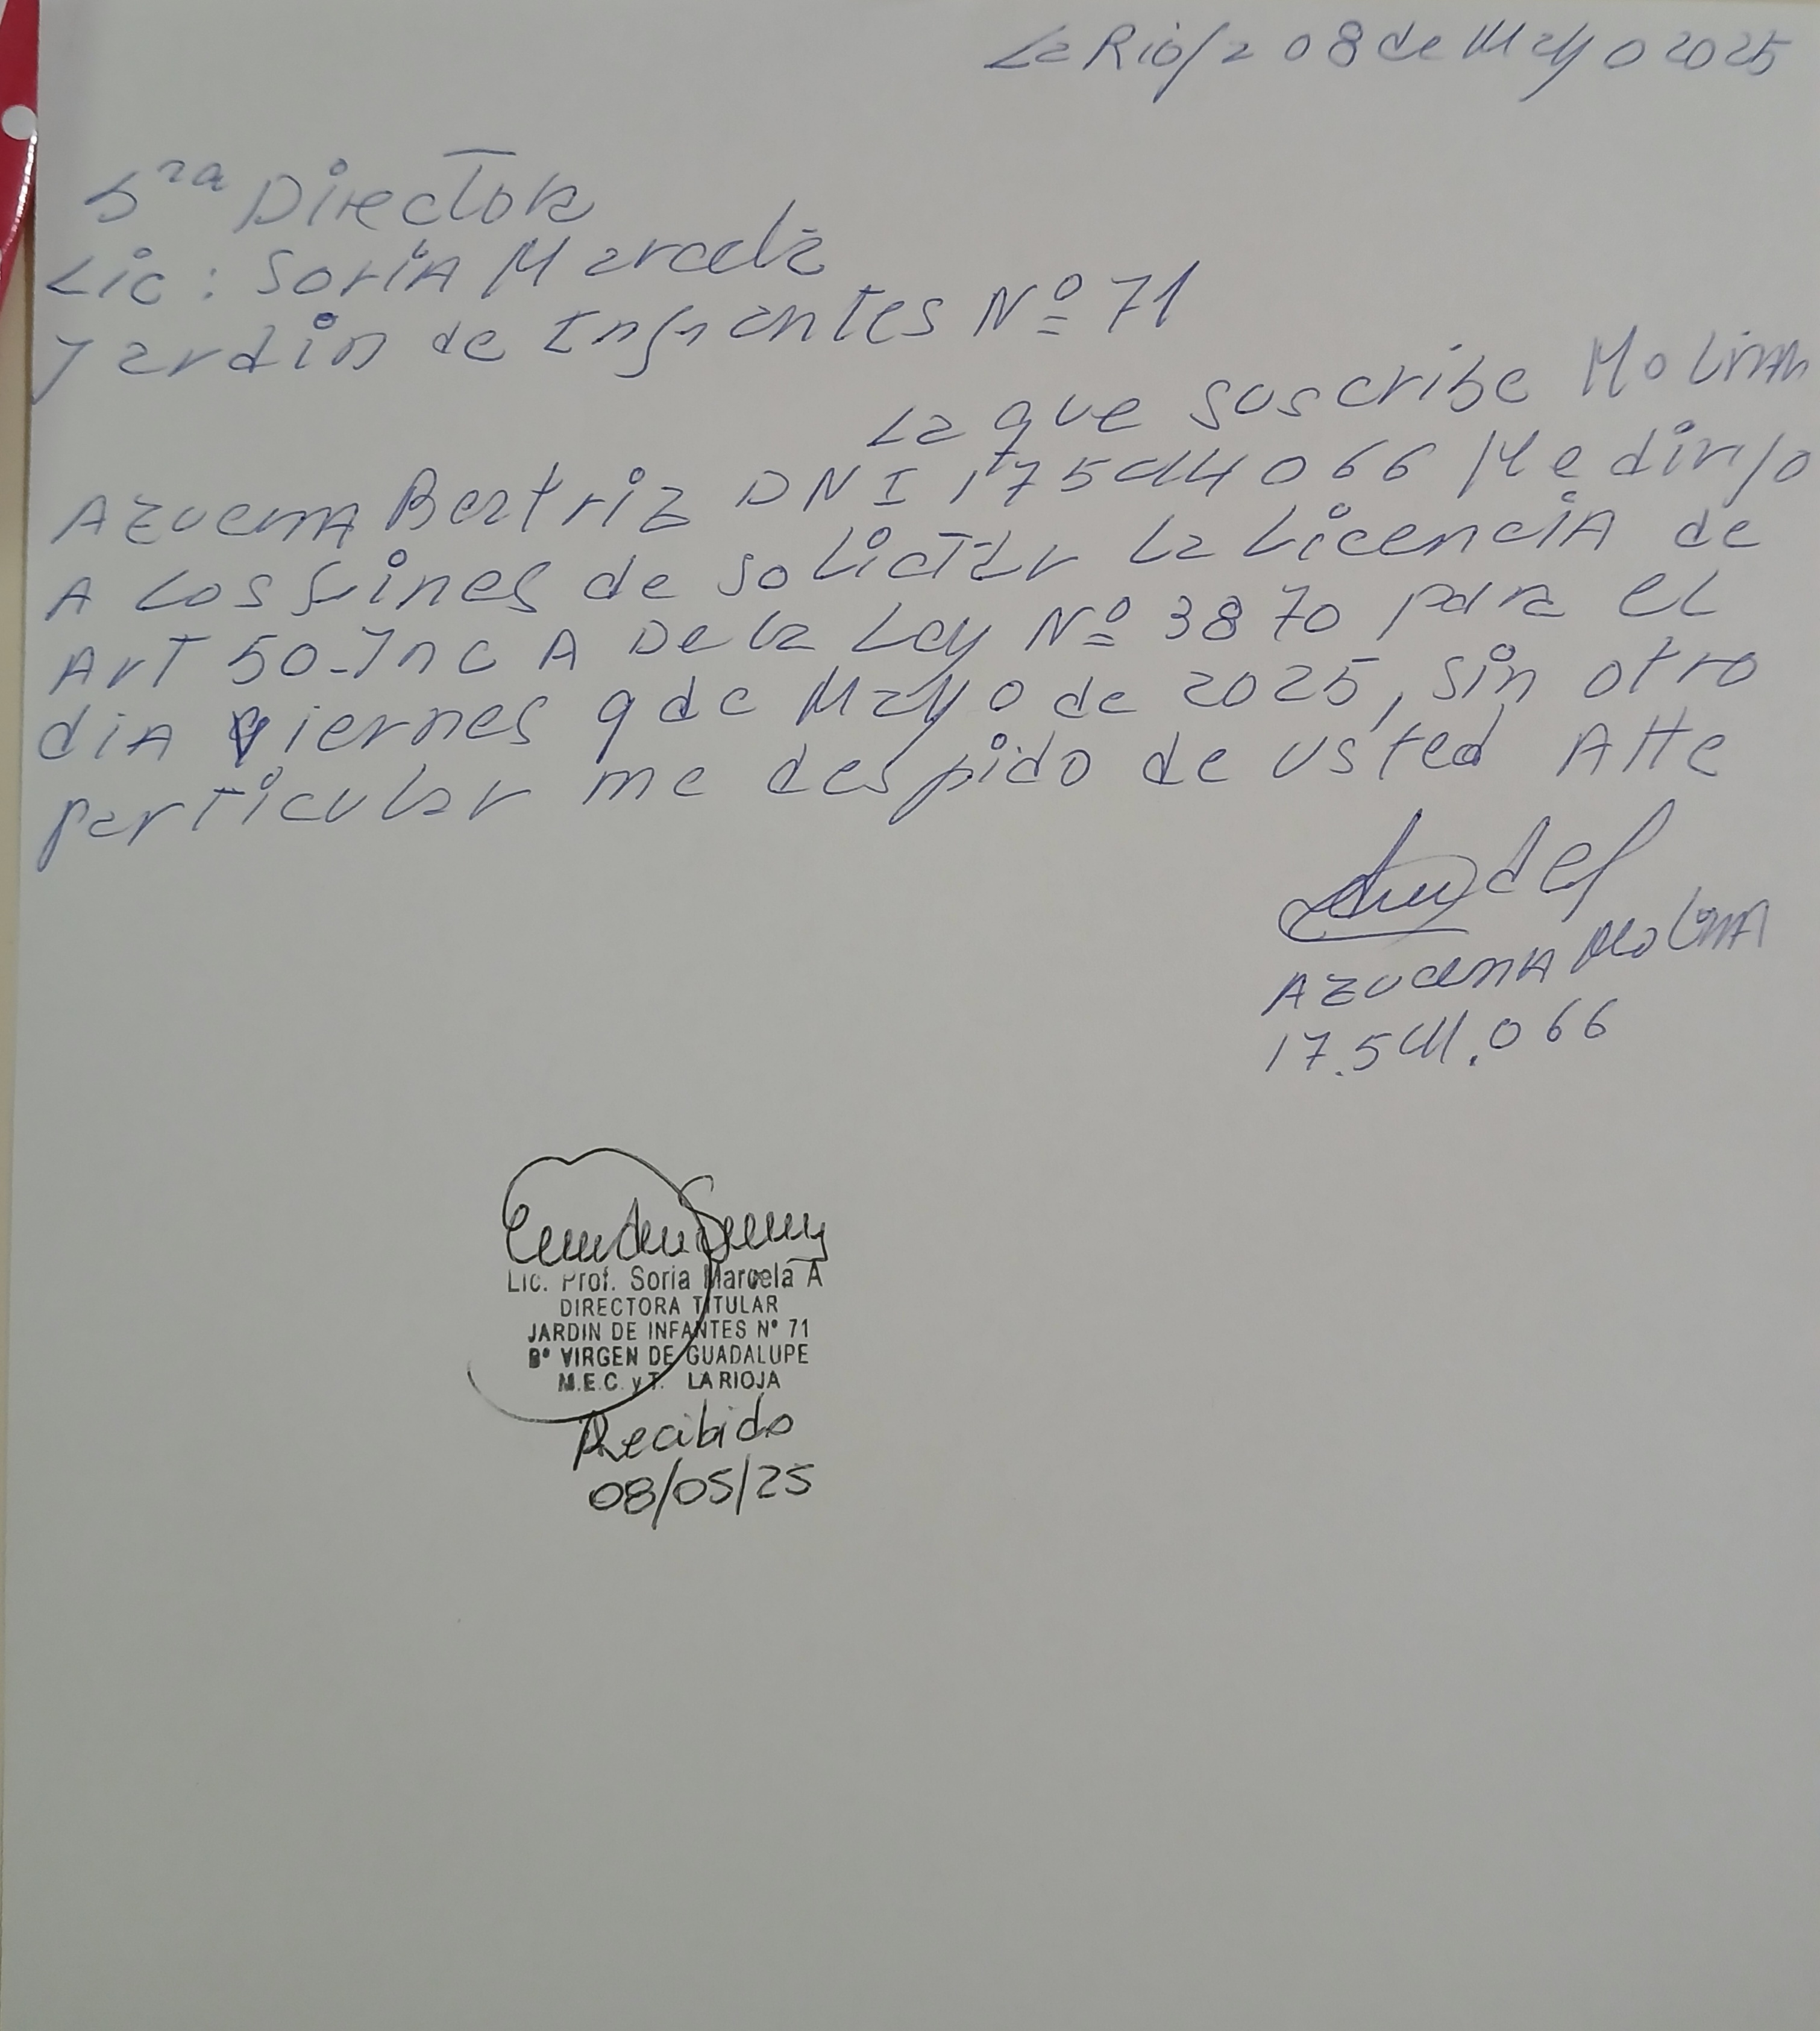 La Rioja 08 de Mayo 2025
Sra Directora
Lic: Soria Marcela
Jardin de Infantes Nº 71
La que suscribe Molina
Azucena Beatriz DNI 17544066 Me dirijo
A Los fines de solicitar la Licencia de
Art 50-Inc A De la Ley Nº 3870 para el
dia viernes 9 de Mayo de 2025, sin otro
particular me despido de usted Atte
Azucena Molina
17.544.066
Lic. Prof. Soria Marcela A
DIRECTORA TITULAR
JARDIN DE INFANTES Nº 71
Bº VIRGEN DE GUADALUPE
M.E.C. y T. LA RIOJA
Recibido
08/05/25